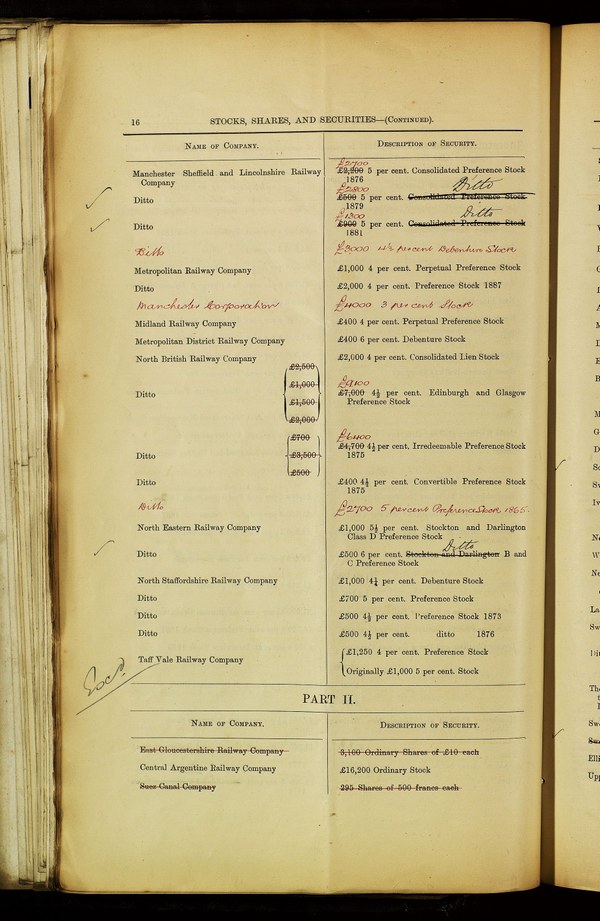 16
STOCKS, SHARES, AND SECURITIES—(CONTINUED).
NAME OF COMPANY.
DESCRIPTION OF SECURITY.
£2700
Manchester Sheffield and Lincolnshire Railway
Company
£2,200 5 per cent. Consolidated Preference Stock
1876
£2800
Ditto
Ditto
£500 5 per cent. Consolidated Preference Stock
1879
£1300
Ditto
Ditto
£900 5 per cent. Consolidated Preference Stock
1881
Ditto
£3000 4½ per cent Debenture Stock
Metropolitan Railway Company
£1,000 4 per cent. Perpetual Preference Stock
Ditto
£2,000 4 per cent. Preference Stock 1887
Manchester Corporation
£4000 3 per cent Stock
Midland Railway Company
£400 4 per cent. Perpetual Preference Stock
Metropolitan District Railway Company
£400 6 per cent. Debenture Stock
North British Railway Company
£2,000 4 per cent. Consolidated Lien Stock
£2,500
£1,000
£1,500
£2,000
Ditto
£9100
£7,000 4½ per cent. Edinburgh and Glasgow
Preference Stock
£700
£3,500
£500
Ditto
£6400
£4,700 4½ per cent. Irredeemable Preference Stock
1875
Ditto
£400 4½ per cent. Convertible Preference Stock
1875
Ditto
£2700 5 per cent Preference Stock 1865.
North Eastern Railway Company
£1,000 5½ per cent. Stockton and Darlington
Class D Preference Stock
Ditto
Ditto
£500 6 per cent. Stockton and Darlington B and
C Preference Stock
North Staffordshire Railway Company
£1,000 4¼ per cent. Debenture Stock
Ditto
£700 5 per cent. Preference Stock
Ditto
£500 4½ per cent. Preference Stock 1873
Ditto
£500 4½ per cent. ditto 1876
Taff Vale Railway Company
£1,250 4 per cent. Preference Stock
Originally £1,000 5 per cent. Stock
PART II.
NAME OF COMPANY.
DESCRIPTION OF SECURITY.
East Gloucestershire Railway Company
3,100 Ordinary Shares of £10 each
Central Argentine Railway Company
£16,200 Ordinary Stock
Suez Canal Company
295 Shares of 500 francs each